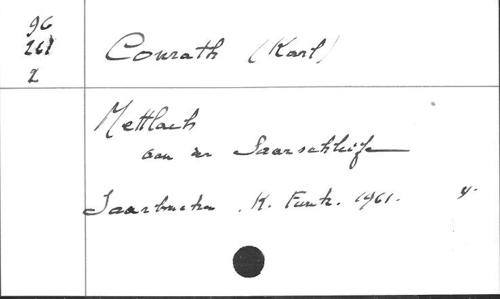 96
261
2
Conrath (Karl)
Mettlach
an der Saarschleife
Saarbrücken . K. Funk. 1961. 4.